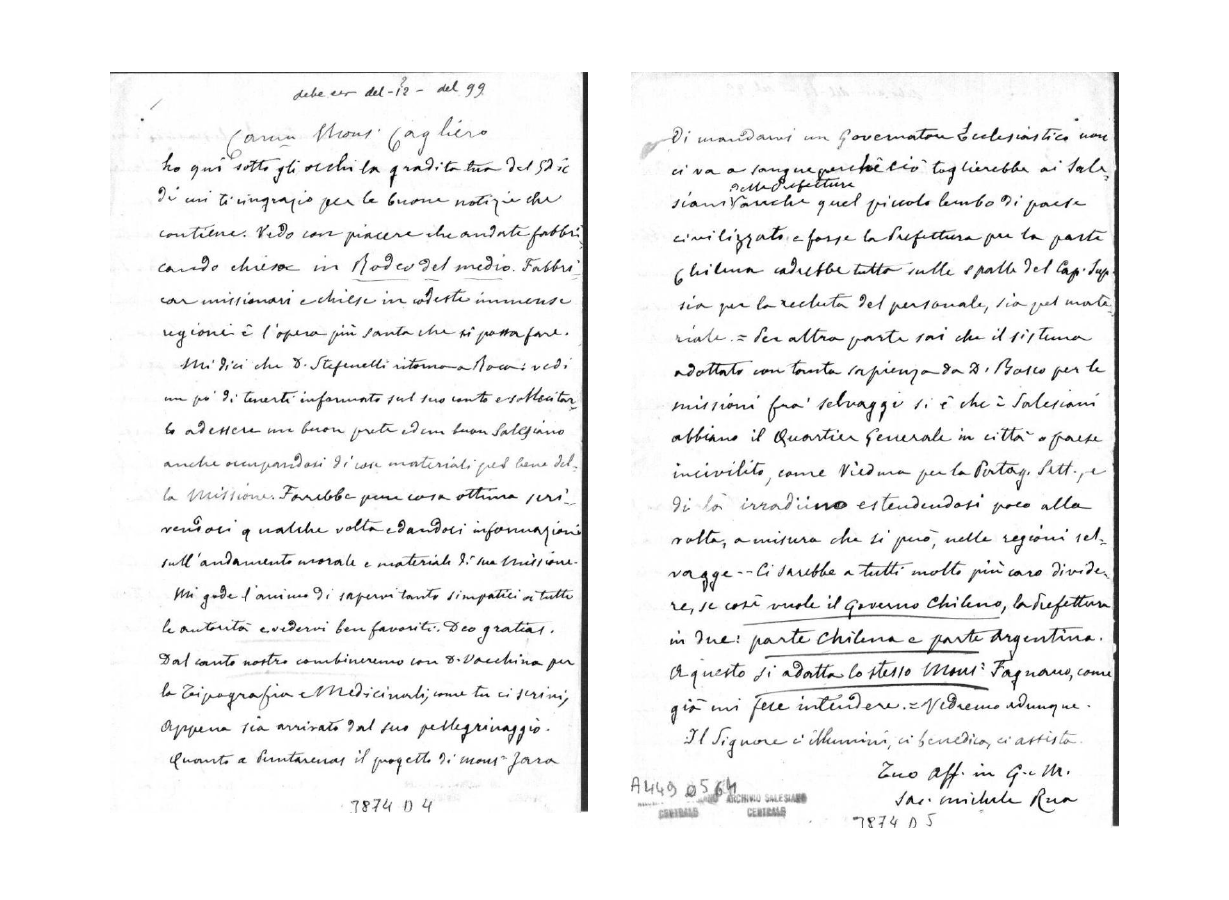 debe ser del -12- del 99
Carmo Mons.r Cagliero
ho qui sotto gli occhi la gradita tua del 5 dic
di cui ti ringrazio per le buone notizie che
contiene. Vedo con piacere che andate fabbri-
cando chiese in Rodeo del medio. Fabbri-
car missionari e chiese in codeste immense
regioni è l'opera più santa che si possa fare.
Mi dici che D. Stefenelli ritorna a Roca: vedi
un po' di tenerti informato sul suo conto e sollecitar-
lo ad essere un buon prete ed un buon Salesiano
anche occupandosi di cose materiali pel bene del-
la Missione. Farebbe pure cosa ottima scri-
vendoci qualche volta e dandoci informazioni
sull'andamento morale e materiale di sua Missione.
Mi gode l'animo di sapervi tanto simpatici a tutte
le autorità e vedervi ben favoriti. Deo gratias.
Dal canto nostro combineremo con D. Vacchina per
la Tipografia e Medicinali, come tu ci scrivi,
appena sia arrivato dal suo pellegrinaggio.
Quanto a Puntarenas il progetto di Mons.r Jara
3874 D 4
di mandarvi un Governatore Ecclesiastico non
ci va a sangue perchè ciò toglierebbe ai Sale-
della Prefettura
siani anche quel piccolo lembo di paese
civilizzato e forse la Prefettura per la parte
Chilena cadrebbe tutta sulle spalle del Cap. Sup.
sia per la recluta del personale, sia pel mate-
riale. = Per altra parte sai che il sistema
adottato con tanta sapienza da D. Bosco per le
missioni fra' selvaggi si è che i Salesiani
abbiano il Quartier Generale in città o paese
incivilito, come Viedma per la Patag. Sett., e
di là irradiino estendendosi poco alla
volta, a misura che si può, nelle regioni sel-
vagge -- Ci sarebbe a tutti molto più caro divide-
re, se così vuole il Governo Chileno, la Prefettura
in due: parte Chilena e parte Argentina.
A questo si adatta lo stesso Mons.r Fagnano, come
già mi fece intendere. = Vedremo adunque.
Il Signore ci illumini, ci benedica, ci assista.
Tuo aff. in G. e M.
Sac. Michele Rua
A449 0564
ARCHIVIO SALESIANO
CENTRALE
CENTRALE
3874 D 5